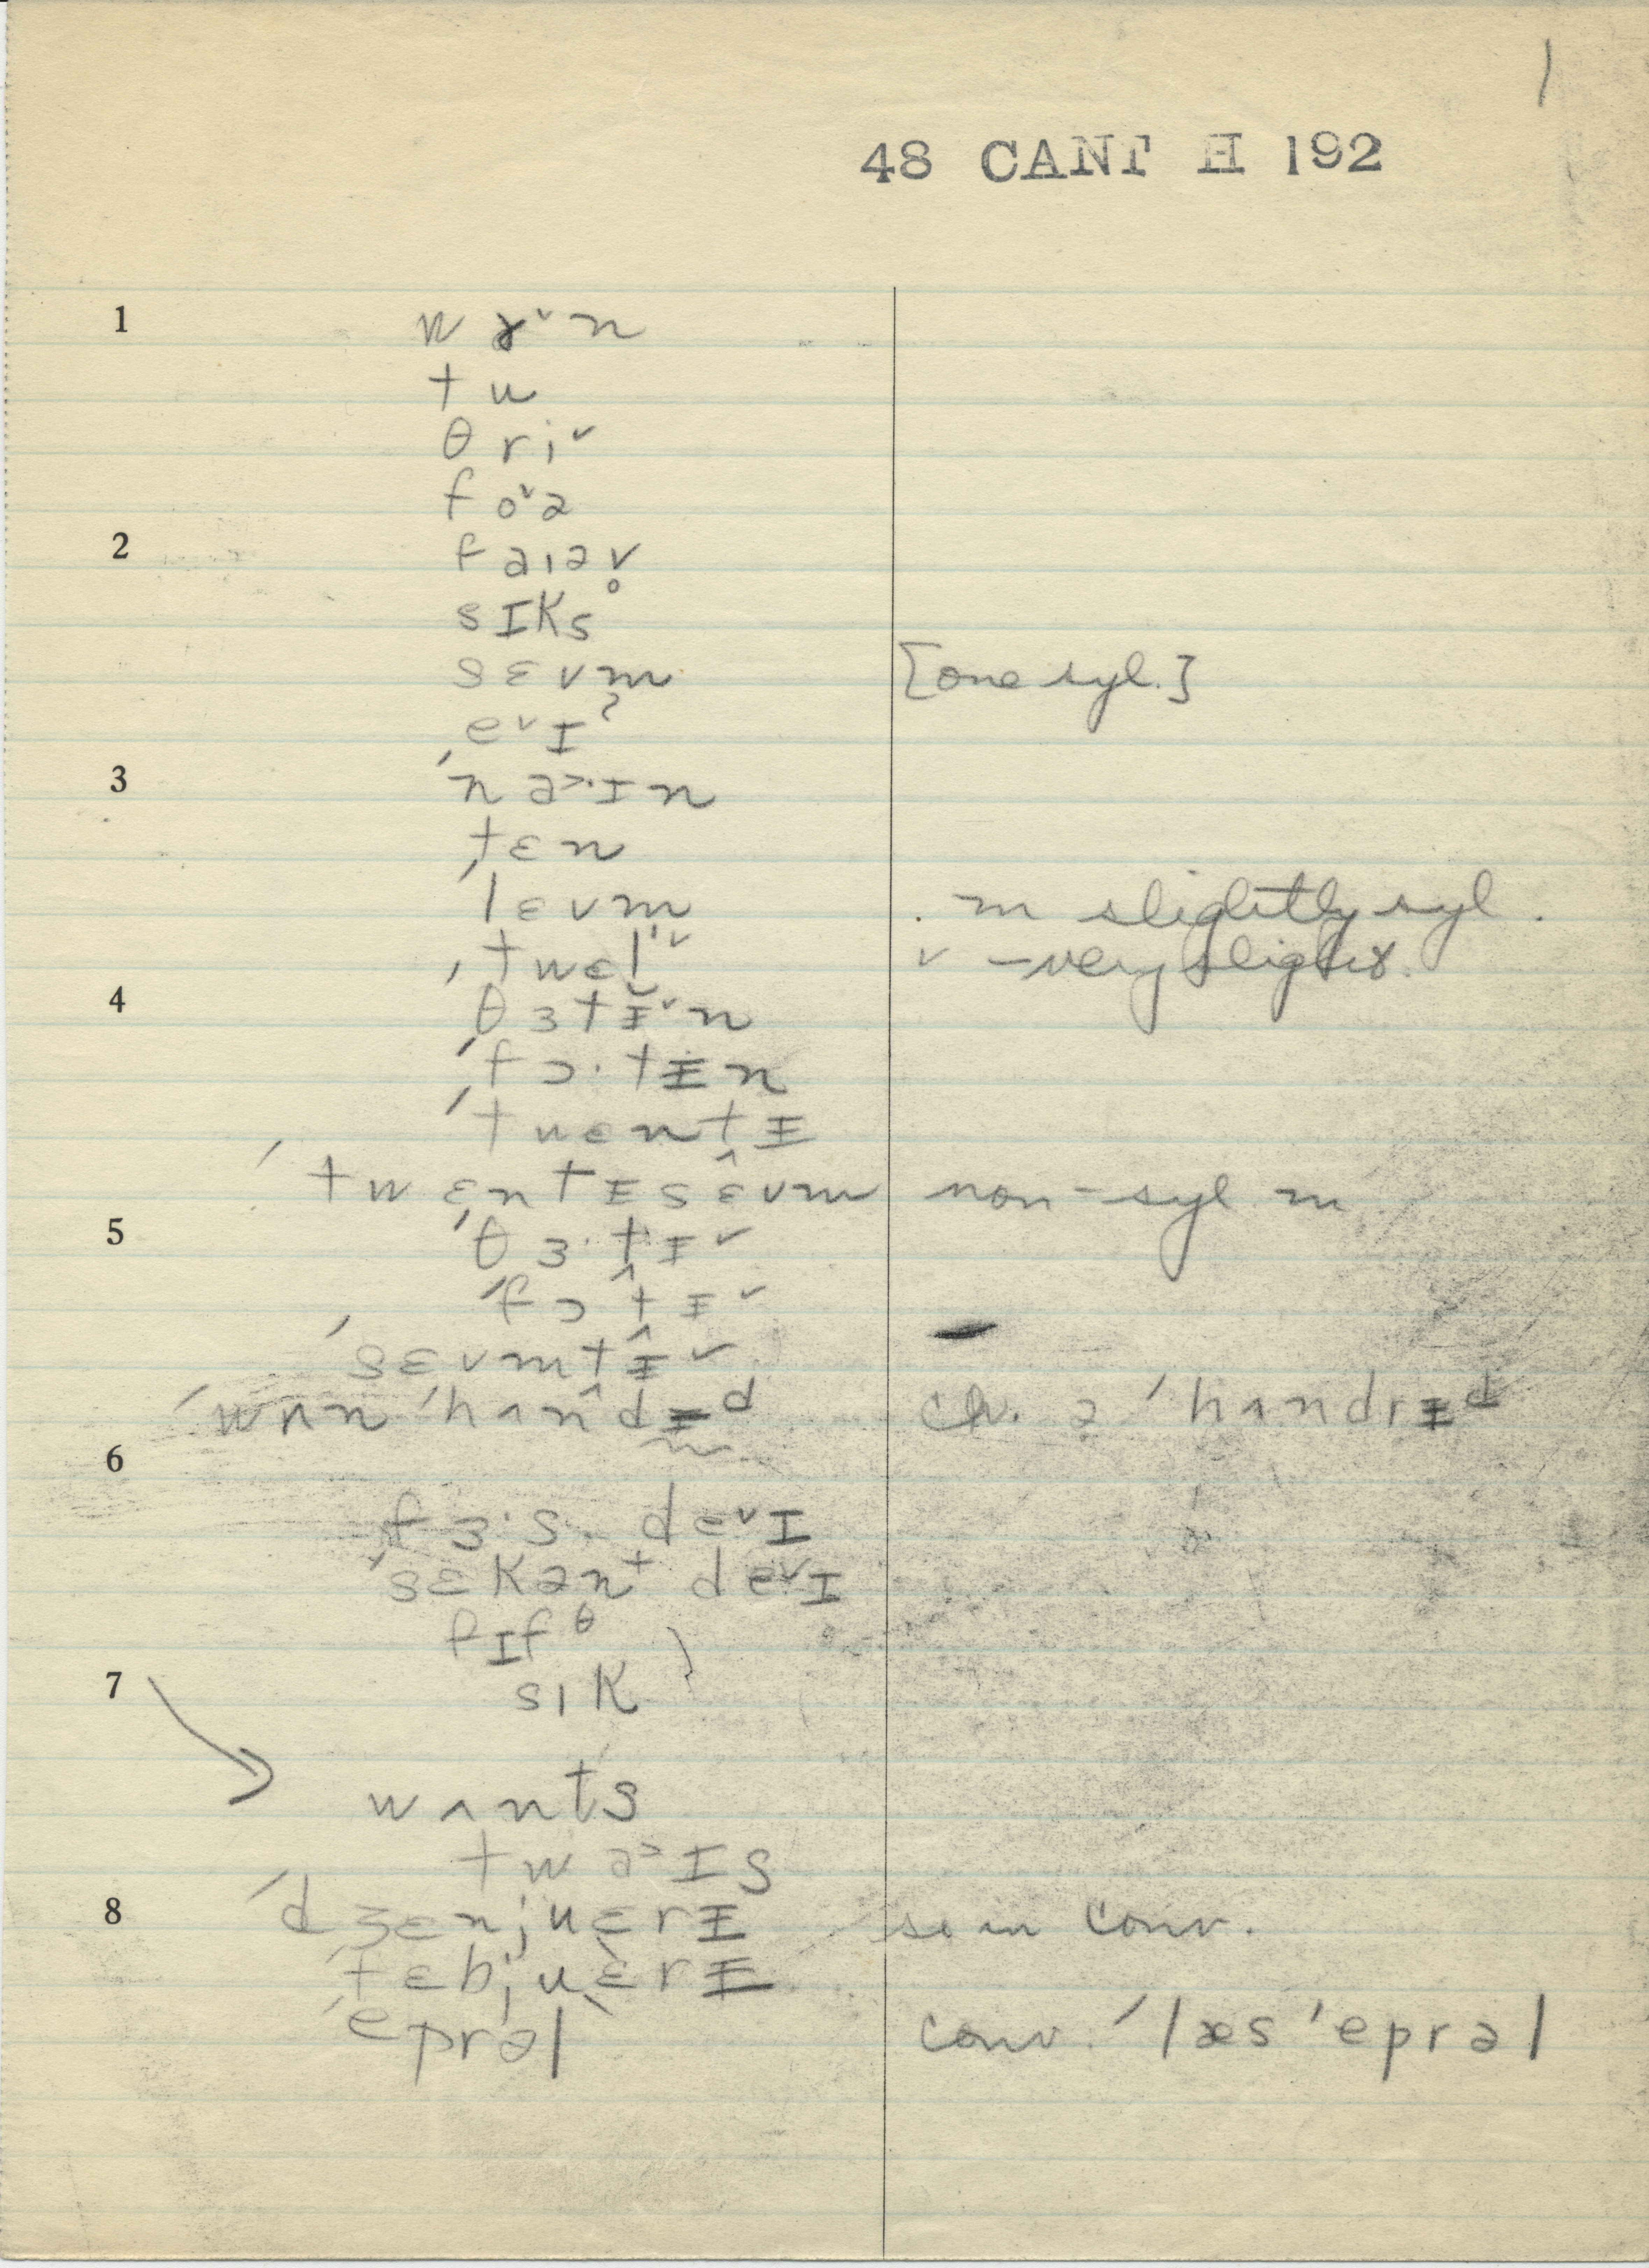 1
48 CANT H 192
1 wɤ˅n
tu
θri˅
fo˅ə
2 faɪəv̥
sɪks
sɛvm [one syl.]
e˅ɪʔ
3 ˈna˃·ɪn
tɛn
ˈlɛvm . m slightly syl.
ˈtwɛl v
4 θɜtɨ˅n
ˈfɔ·tɨn
ˈtwɛntɨ
ˈtwɛntɨsɛ̂vm non-syl m
5 ˈθɜ·tɨ˅
ˈfɔt̂ɨ˅
ˈsɛvmtɨ̂˅
ˈwʌn ˈhʌndɨᵈ cv. ə ˈhʌndrɨᵈ
6
fɜ·s. de˅ɪ
ˈsɛkənᵗ de˅ɪ
fɪfᶿ }
7 sɪk
wʌnts
twa˃ɪs
8 ˈdʒɛnjuɛrɨ so in conv.
ˈfɛbjuɛrɨ
ˈeprəl conv. ˈlæs ˈeprəl